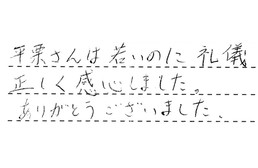 平栗さんは若いのに礼儀
正しく感心しました。
ありがとうございました、